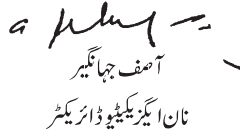 آصف جہانگیر
نان ایگزیکیٹیو ڈائریکٹر